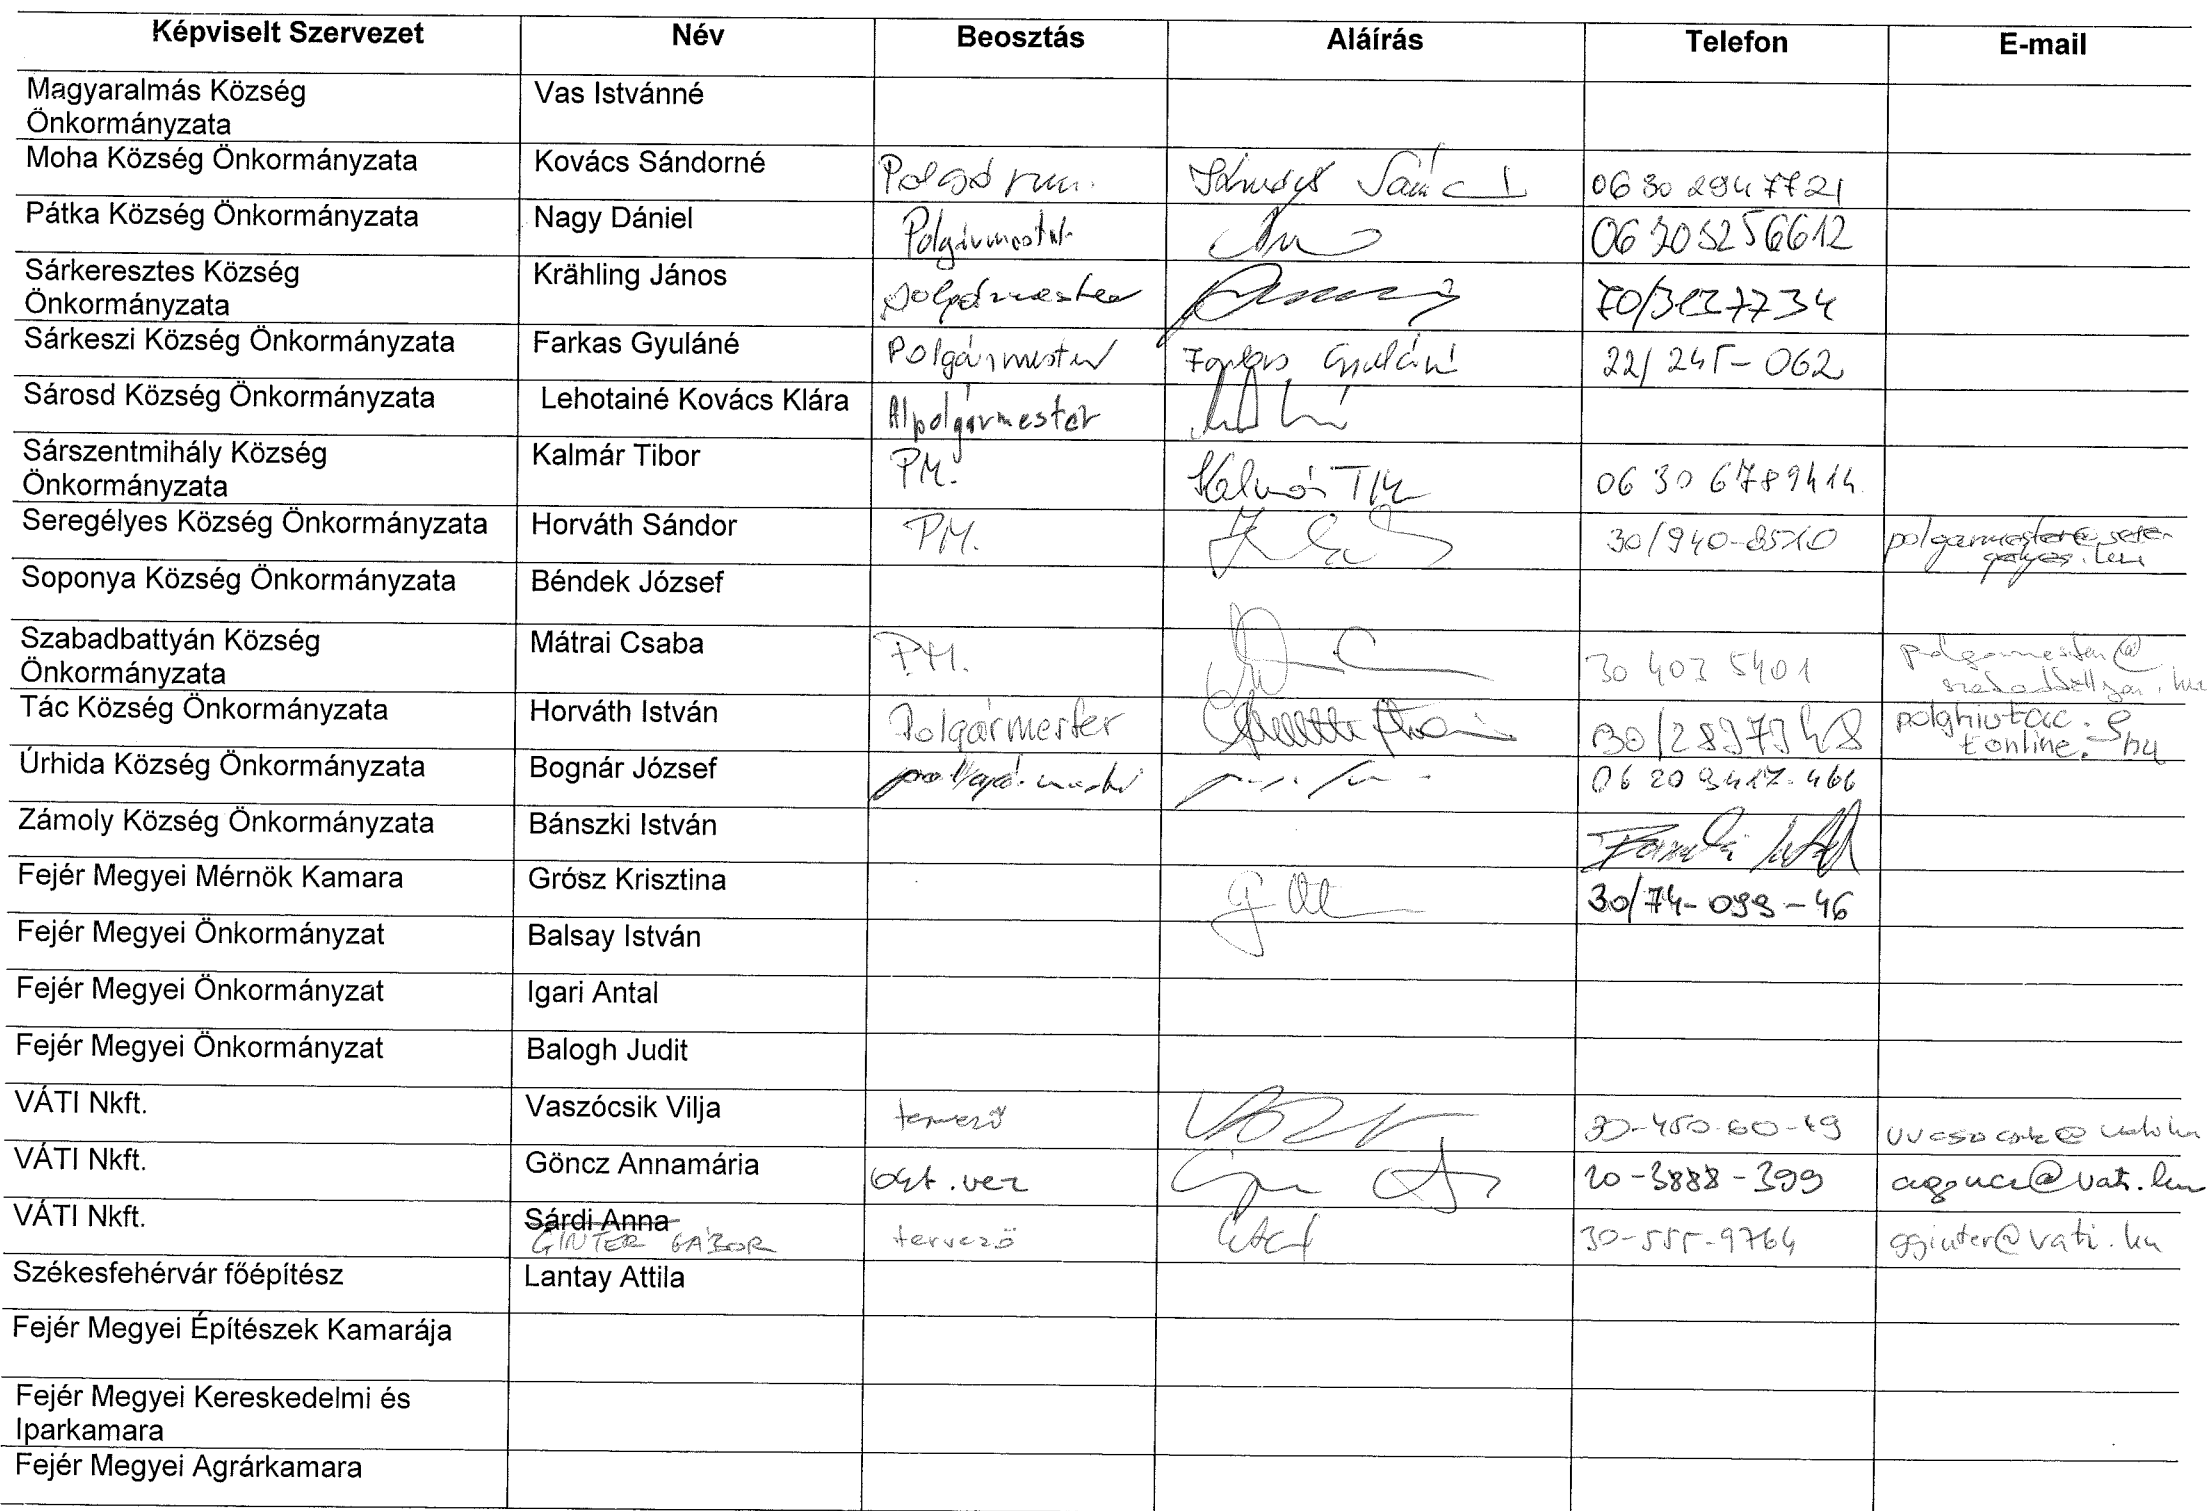 Képviselt Szervezet Név Beosztás Aláírás Telefon E-mail
Magyaralmás Község Vas Istvánné
Önkormányzata
Moha Község Önkormányzata Kovács Sándorné 06 30 294 7721
Pátka Község Önkormányzata Nagy Dániel Polgármester
Sárkeresztes Község Krähling János polgármester
Önkormányzata
Sárkeszi Község Önkormányzata Farkas Gyuláné Polgármester Farkas Gyuláné 22/245-062
Sárosd Község Önkormányzata Lehotainé Kovács Klára Alpolgármester
Sárszentmihály Község Kalmár Tibor PM. 06 30 6789414
Önkormányzata
Seregélyes Község Önkormányzata Horváth Sándor PM. 30/940-8510 polgarmester@sere-
gelyes.hu
Soponya Község Önkormányzata Béndek József
Szabadbattyán Község Mátrai Csaba PM. 30 403 5401 polgarmester@
Önkormányzata szabadbattyan.hu
Tác Község Önkormányzata Horváth István Polgármester
Úrhida Község Önkormányzata Bognár József polgármester 06 20 9417-466
Zámoly Község Önkormányzata Bánszki István
Fejér Megyei Mérnök Kamara Grósz Krisztina 30/74-099-46
Fejér Megyei Önkormányzat Balsay István
Fejér Megyei Önkormányzat Igari Antal
Fejér Megyei Önkormányzat Balogh Judit
VÁTI Nkft. Vaszócsik Vilja tervező 30-450-60-49
VÁTI Nkft. Göncz Annamária 20-3888-399 agoncz@vati.hu
VÁTI Nkft. Sárdi Anna
GINTER GÁBOR tervező 30-555-9764 gginter@vati.hu
Székesfehérvár főépítész Lantay Attila
Fejér Megyei Építészek Kamarája
Fejér Megyei Kereskedelmi és
Iparkamara
Fejér Megyei Agrárkamara